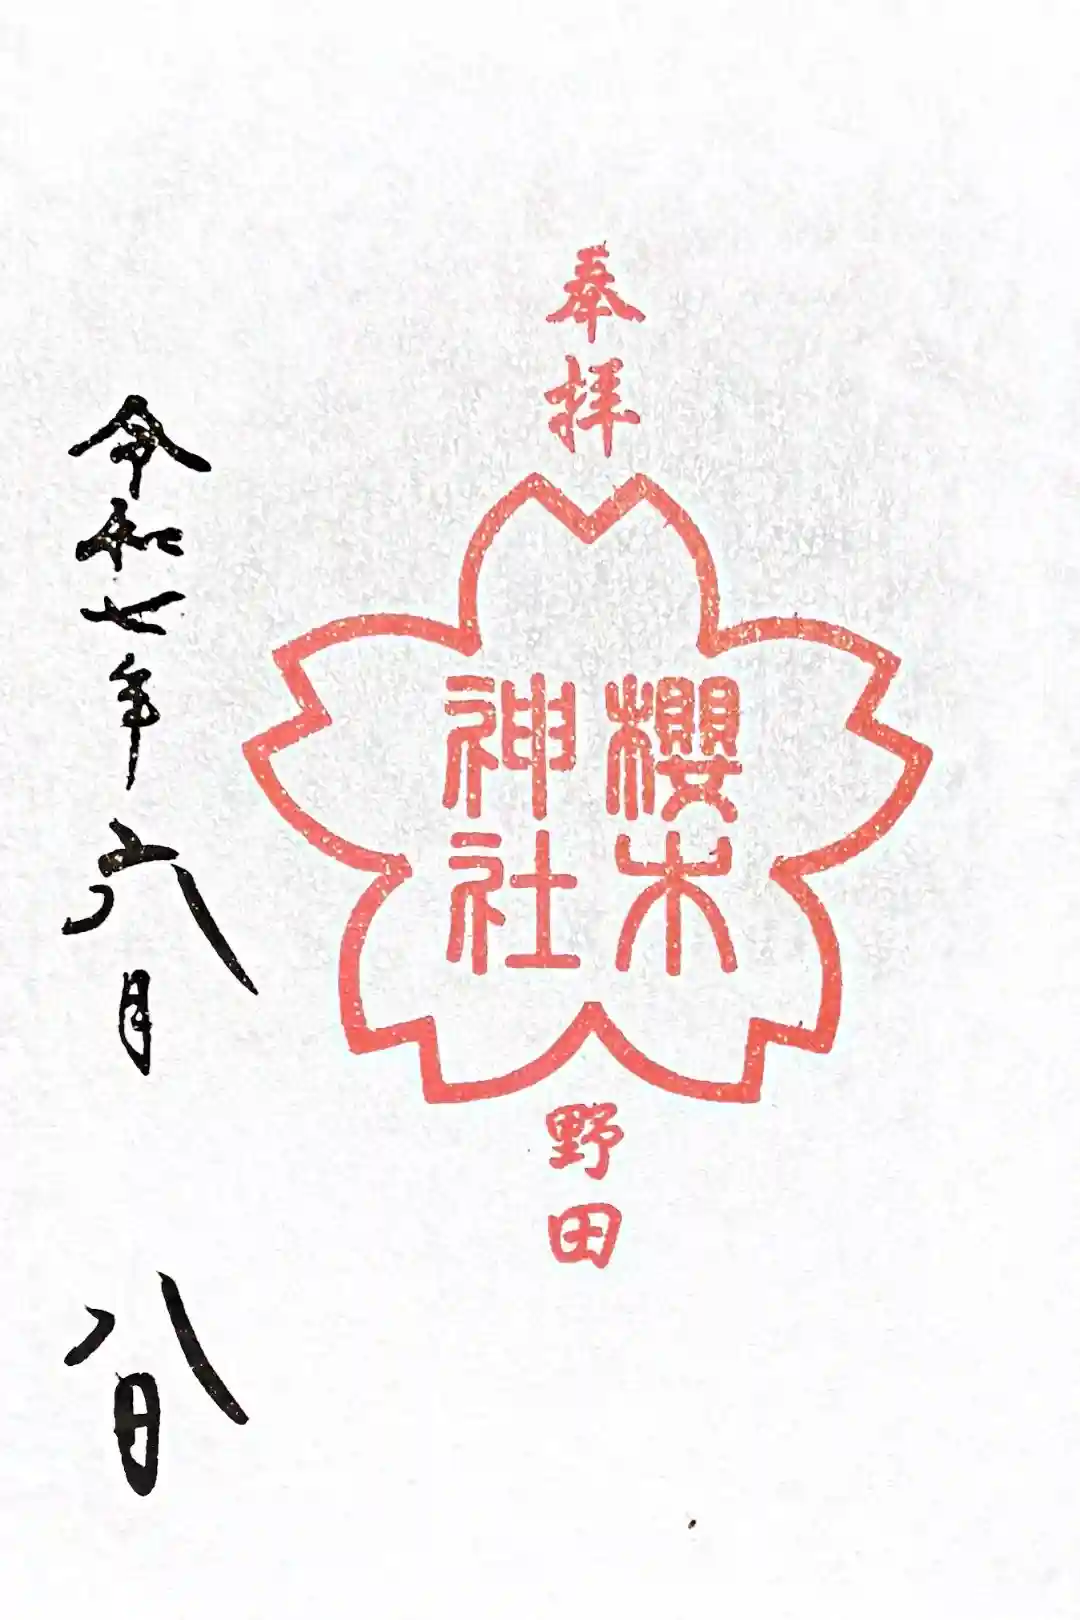 奉拝
櫻木
神社
野田
令和七年六月八日